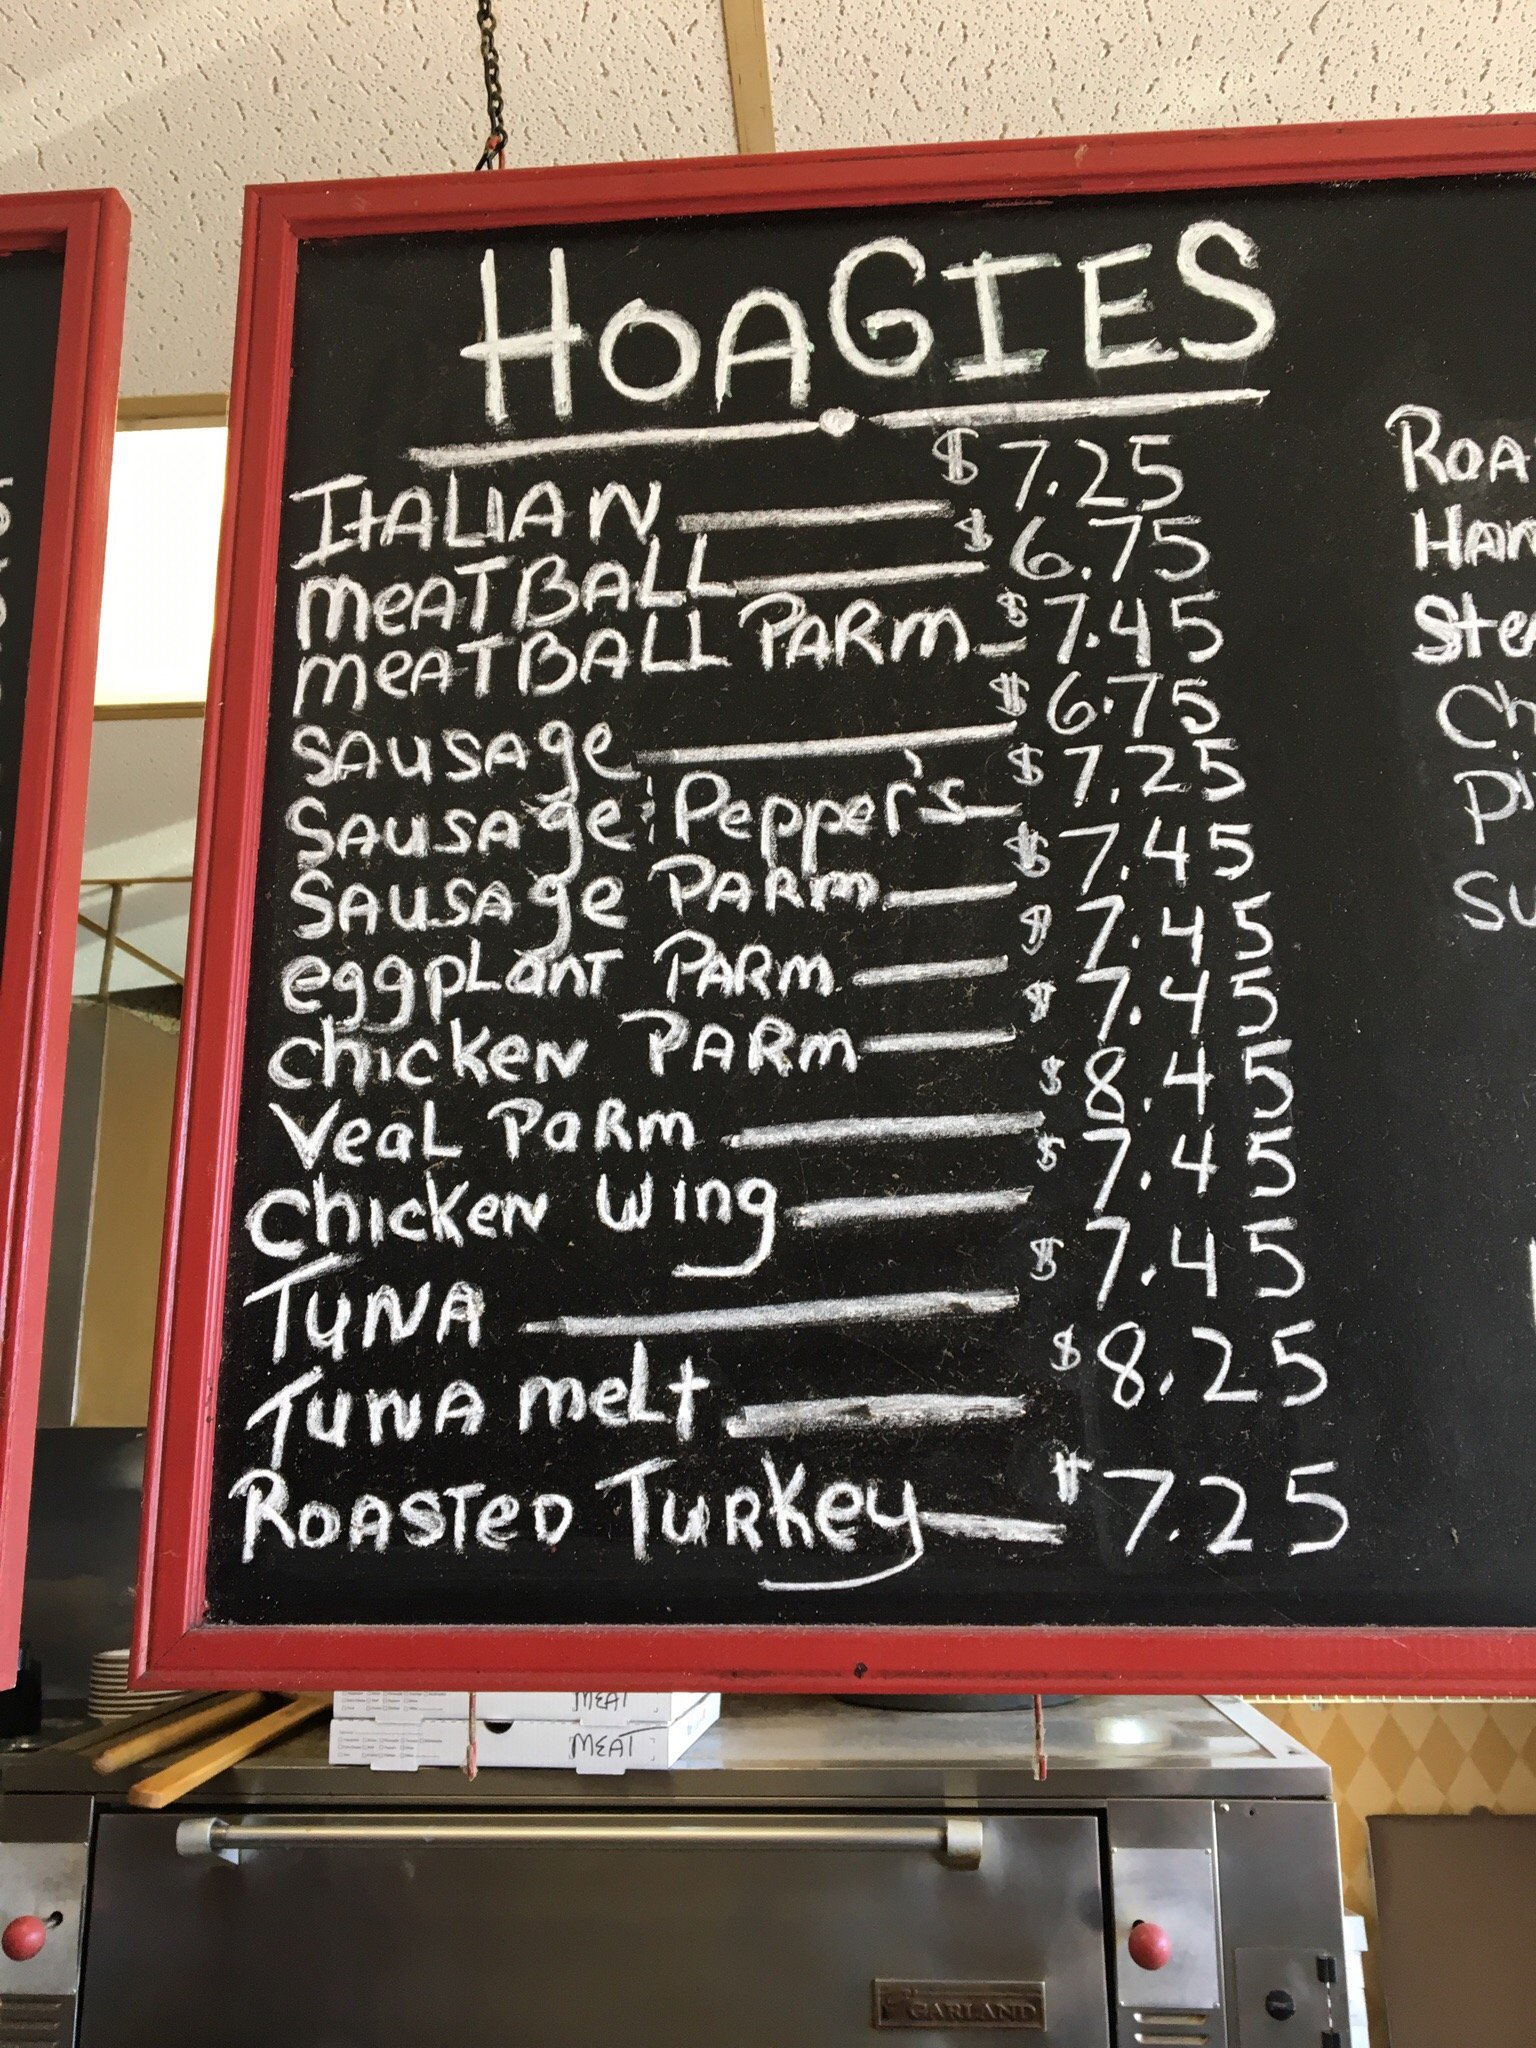 HOAGIES
ITALIAN $7.25
MEATBALL $6.75
MEATBALL PARM $7.45
SAUSAGE $6.75
SAUSAGE: PEPPER'S $7.25
SAUSAGE PARM $7.45
eggpLant PARM $7.45
chicken PARM $7.45
Veal Parm $8.45
Chicken wing $7.45
TUNA $7.45
TUNA melt $8.25
ROASTED Turkey $7.25
MEAT
MEAT
GARLAND